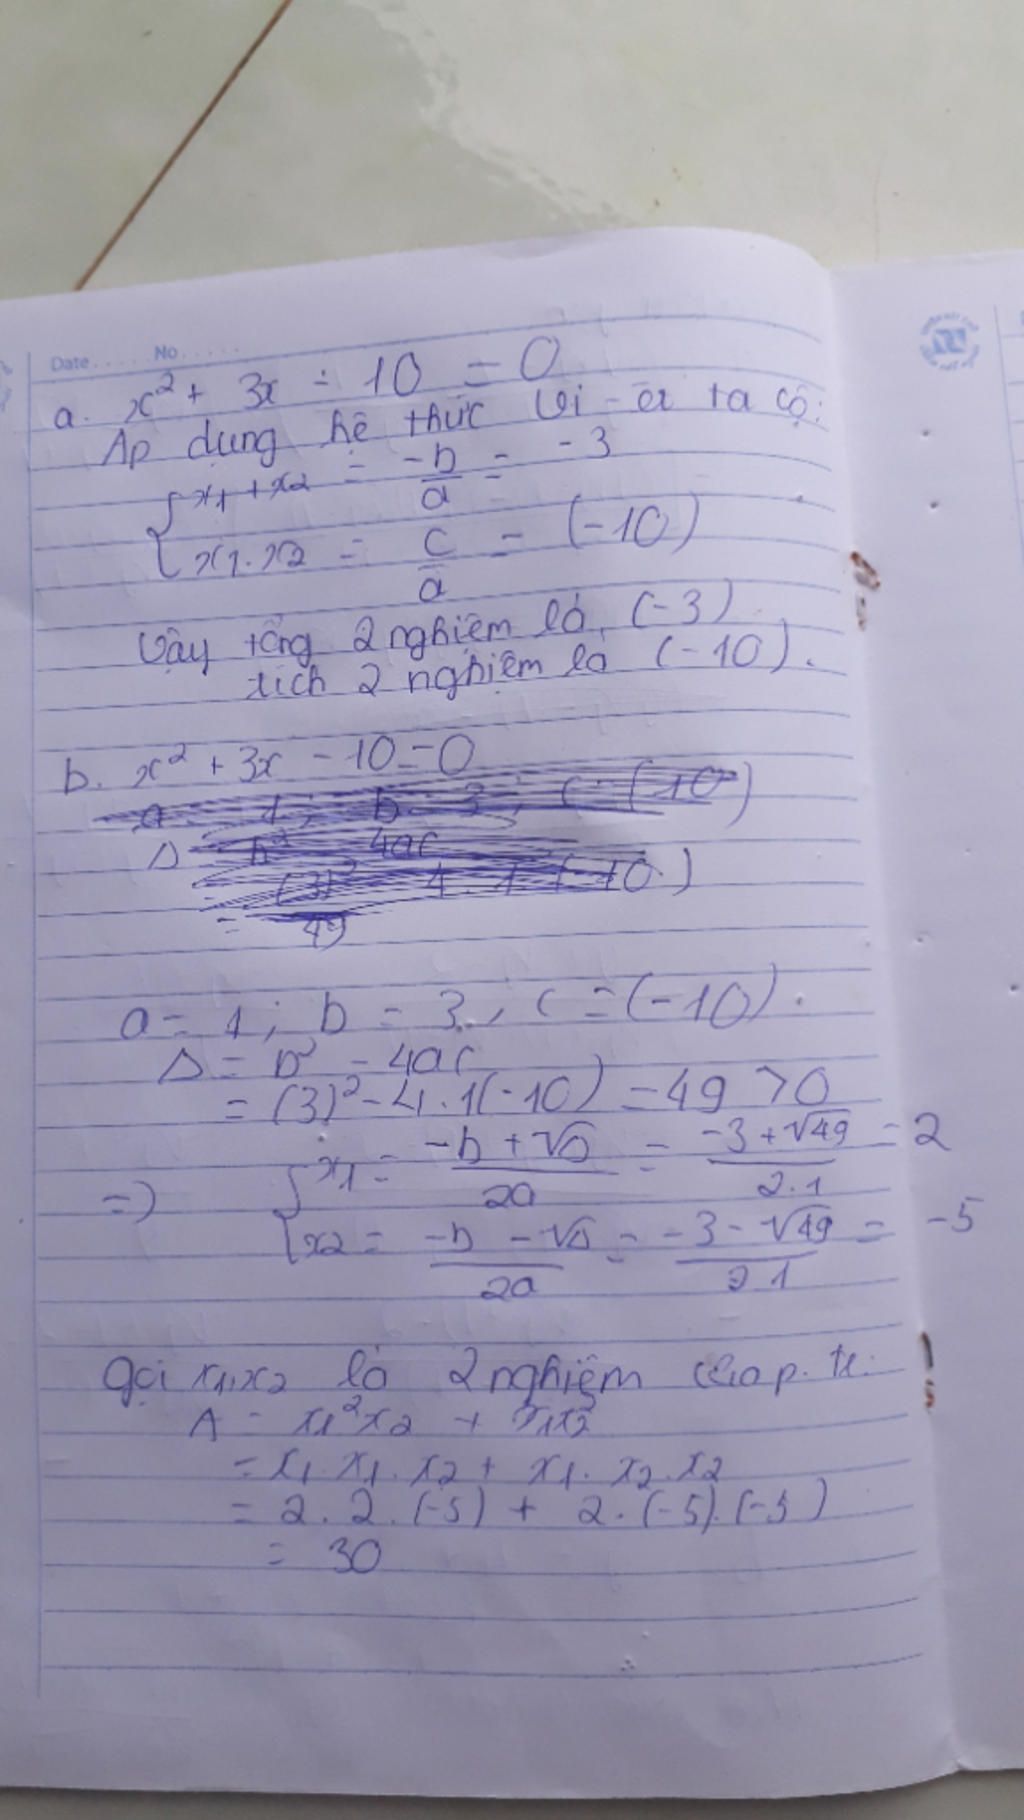 Date ..... No .....
a. x² + 3x - 10 = 0
Áp dụng hệ thức Vi-ét ta có:
{ x1 + x2 = -b/a = -3
{ x1.x2 = c/a = (-10)
Vậy tổng 2 nghiệm là (-3)
tích 2 nghiệm là (-10).
b. x² + 3x - 10 = 0
a = 1; b = 3; c = (-10)
Δ = b² - 4ac
(3)² - 4.1.(-10)
= 49
a = 1; b = 3; c = (-10).
Δ = b² - 4ac
= (3)² - 4.1(-10) = 49 > 0
=> { x1 = -b + √Δ/2a = -3 + √49/2.1 = 2
{ x2 = -b - √Δ/2a = -3 - √49/2.1 = -5
Gọi x1, x2 là 2 nghiệm của p.tr:
A = x1²x2 + x1x2²
= x1.x1.x2 + x1.x2.x2
= 2.2.(-5) + 2.(-5).(-5)
= 30